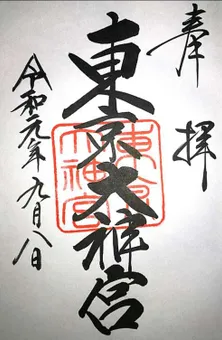 奉拝
東京大神宮
東京
大神宮
令和元年九月八日